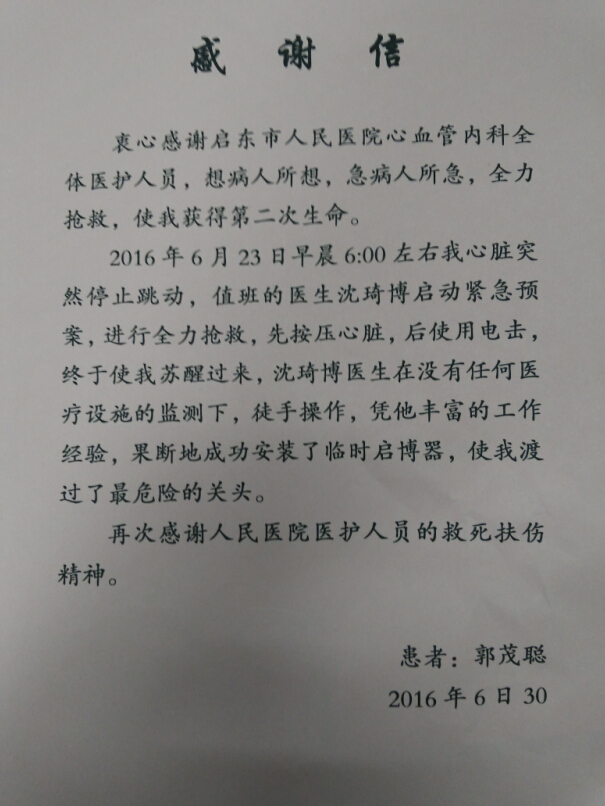 感 谢 信
衷心感谢启东市人民医院心血管内科全
体医护人员，想病人所想，急病人所急，全力
抢救，使我获得第二次生命。
2016年6月23日早晨6:00左右我心脏突
然停止跳动，值班的医生沈琦博启动紧急预
案，进行全力抢救，先按压心脏，后使用电击，
终于使我苏醒过来，沈琦博医生在没有任何医
疗设施的监测下，徒手操作，凭他丰富的工作
经验，果断地成功安装了临时启博器，使我渡
过了最危险的关头。
再次感谢人民医院医护人员的救死扶伤
精神。
患者：郭茂聪
2016年6日30